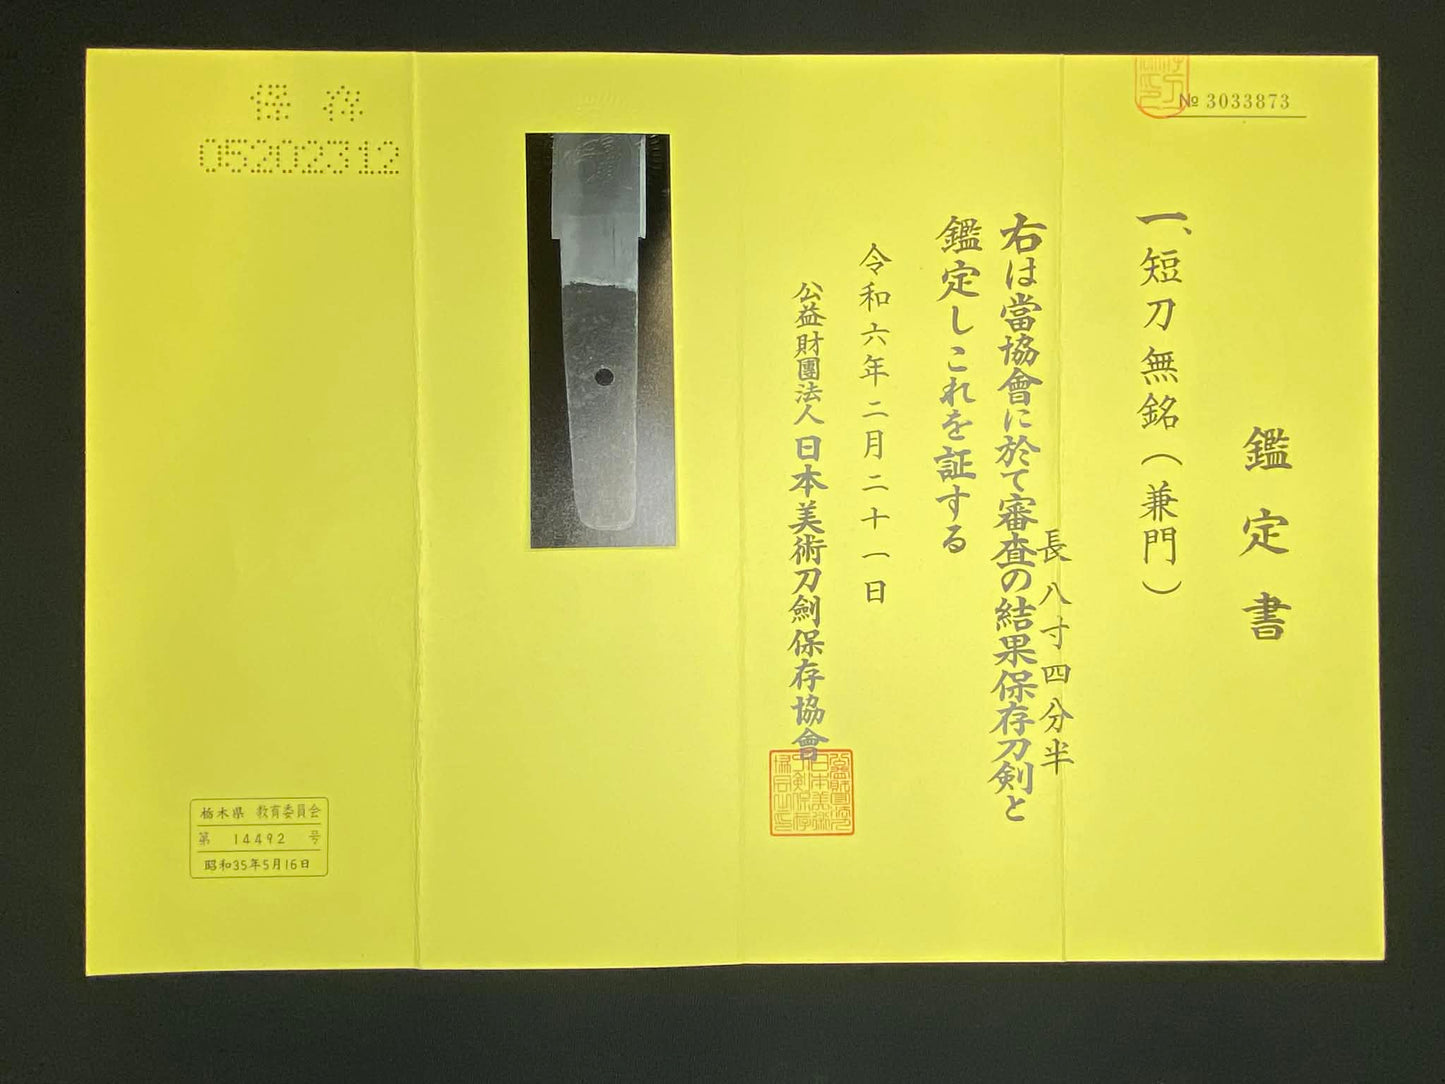 № 3033873
鑑定書
一、短刀無銘（兼門）
長八寸四分半
右は當協會に於て審査の結果保存刀剣と
鑑定しこれを証する
令和六年二月二十一日
公益財團法人日本美術刀劍保存協會
保存
05202312
栃木県 教育委員会
第 14492 号
昭和35年5月16日